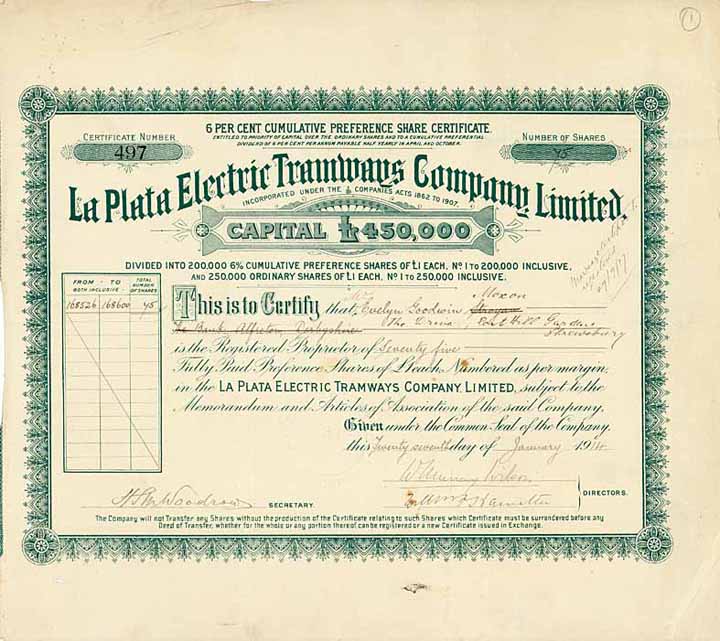 1
6 PER CENT CUMULATIVE PREFERENCE SHARE CERTIFICATE.
ENTITLED TO PRIORITY OF CAPITAL OVER THE ORDINARY SHARES AND TO A CUMULATIVE PREFERENTIAL
DIVIDEND OF 6 PER CENT PER ANNUM PAYABLE HALF YEARLY IN APRIL AND OCTOBER.
CERTIFICATE NUMBER
497
NUMBER OF SHARES
75
La Plata Electric Tramways Company Limited.
INCORPORATED UNDER THE COMPANIES ACTS 1862 TO 1907.
CAPITAL £450,000
DIVIDED INTO 200,000 6% CUMULATIVE PREFERENCE SHARES OF £1 EACH, Nº 1 TO 200,000 INCLUSIVE,
AND 250,000 ORDINARY SHARES OF £1 EACH, Nº 1 TO 250,000 INCLUSIVE.
FROM - TO
BOTH INCLUSIVE
TOTAL NUMBER OF SHARES
168526 168600 75
Moxon
This is to Certify that Evelyn Goodwin
The Bank Alfreton Derbyshire
Gardens
Shrewsbury
is the Registered Proprietor of Seventy five
Fully Paid Preference Shares of £1 each, Numbered as per margin,
in the LA PLATA ELECTRIC TRAMWAYS COMPANY, LIMITED, subject to the
Memorandum and Articles of Association of the said Company.
Given under the Common Seal of the Company.
this Twenty seventh day of January 1914
DIRECTORS.
Woodrow
SECRETARY.
The Company will not Transfer any Shares without the production of the Certificate relating to such Shares which Certificate must be surrendered before any
Deed of Transfer, whether for the whole or any portion thereof can be registered or a new Certificate issued in Exchange.